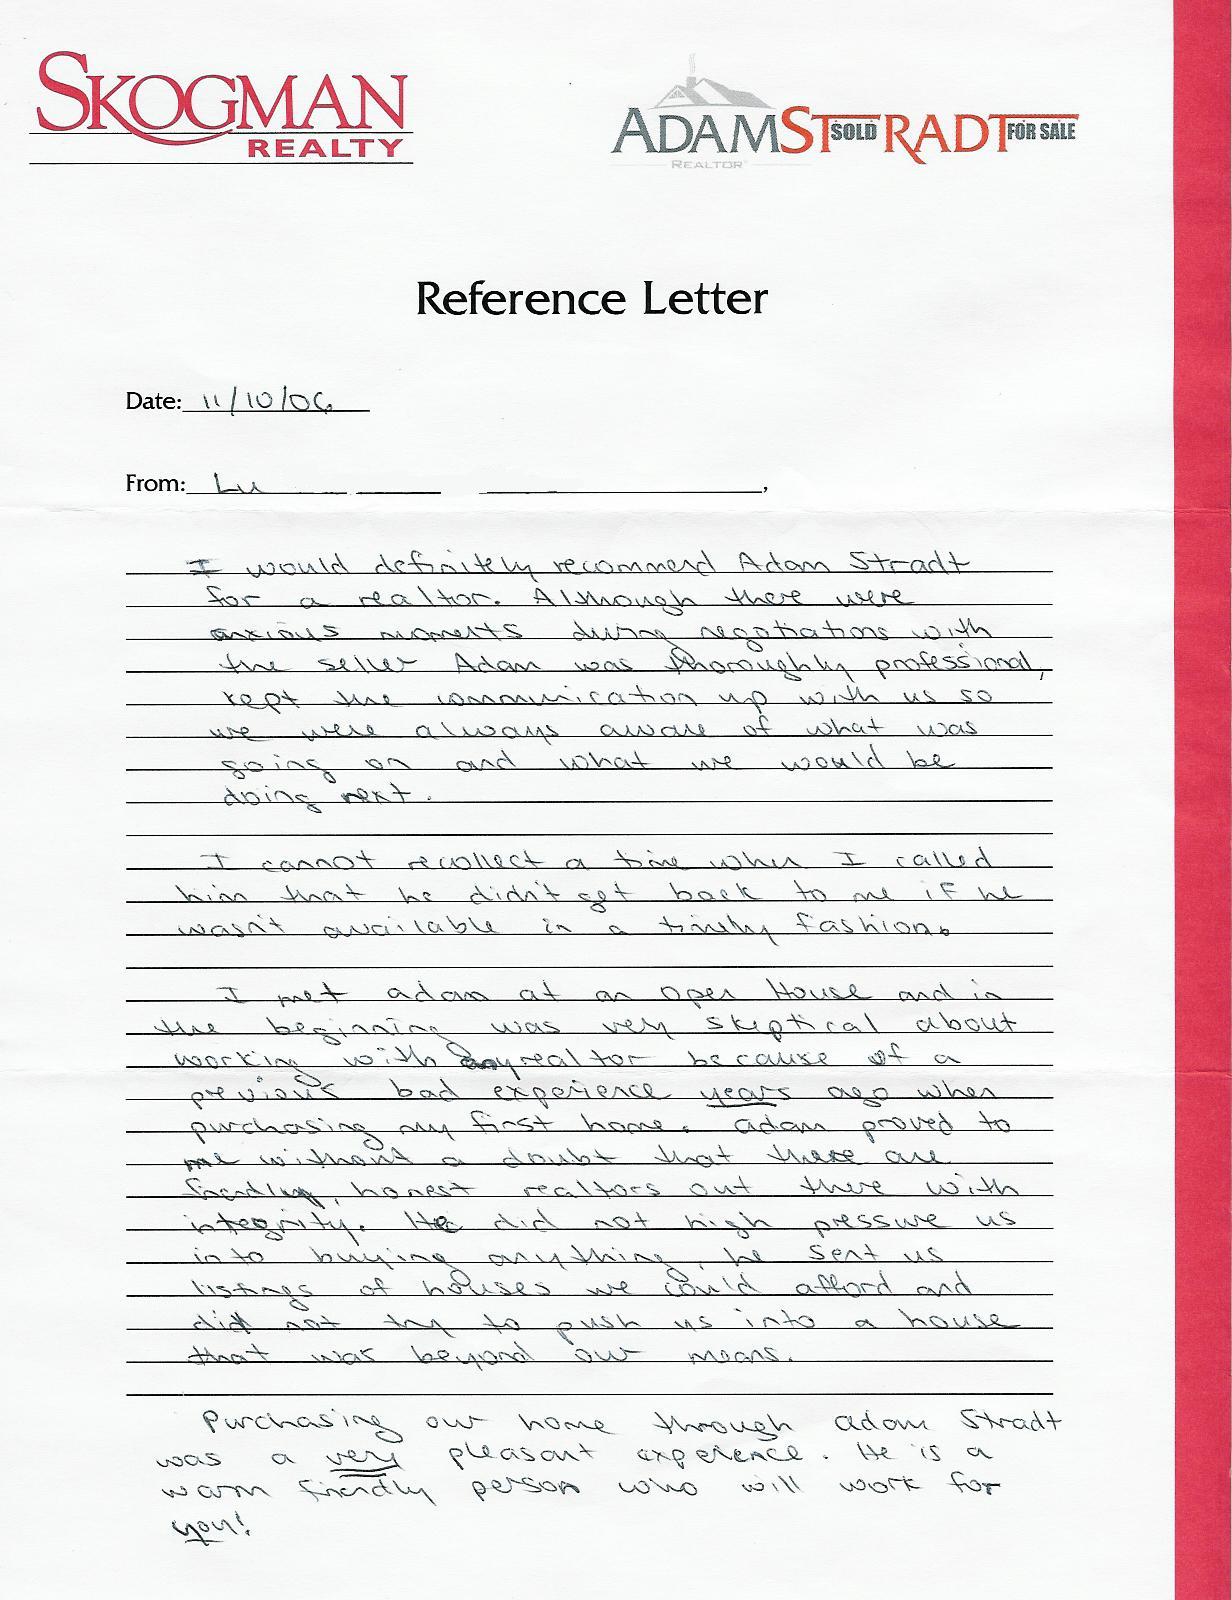 SKOGMAN
REALTY
ADAM STRADT
SOLD
FOR SALE
REALTOR®
Reference Letter
Date: 11/10/06
From: Lu ,
I would definitely recommend Adam Stradt
for a realtor. Although there were
anxious moments during negotiations with
the seller Adam was thoroughly professional,
kept the communication up with us so
we were always aware of what was
going on and what we would be
doing next.
I cannot recollect a time when I called
him that he didn't get back to me if he
wasn't available in a timely fashion.
I met adam at an Open House and in
the beginning was very skeptical about
working with any realtor because of a
previous bad experience years ago when
purchasing my first home. adam proved to
me without a doubt that there are
friendly, honest realtors out there with
integrity. He did not high pressure us
into buying anything, he sent us
listings of houses we could afford and
did not try to push us into a house
that was beyond our means.
Purchasing our home through adam Stradt
was a very pleasant experience. He is a
warm friendly person who will work for
you!